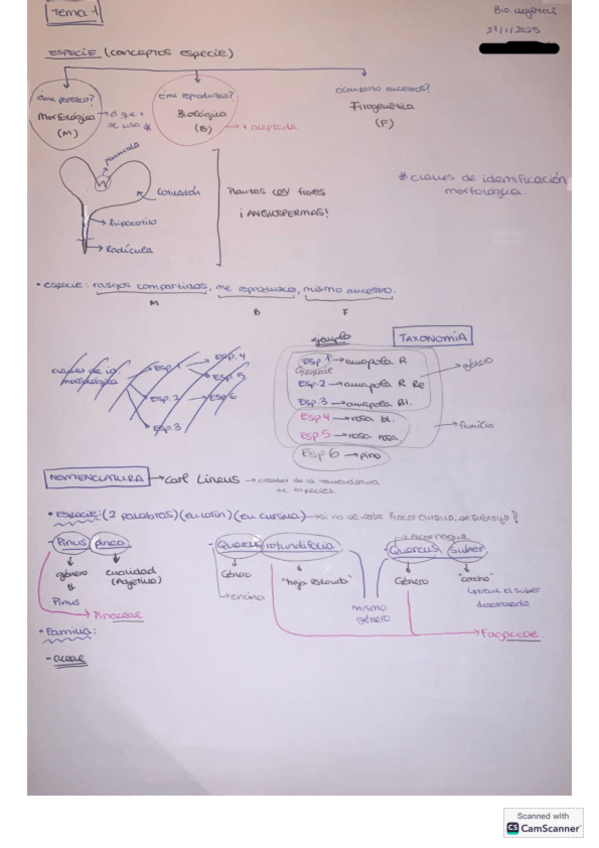 Tema 1
Bio. vegetal
27/11/2025
ESPECIE (conceptos especie)
¿me parezco?
Morfológica
(M)
→ la que +
se usa *
¿me reproduzco?
Biológica
(B)
→ + aceptada
¿comparto ancestros?
Filogenética
(F)
Plúmula
Cotiledón
Hipocotilo
Radícula
Plantas con flores
¡ANGIOSPERMAS!
# claves de identificación
morfológica.
• especie: rasgos compartidos, me reproduzco, mismo ancestro.
M B F
claves de id.
morfológica
Esp. 1
Esp. 2
Esp. 3
Esp. 4
Esp. 5
Esp. 6
ejemplo
TAXONOMÍA
Esp 1 → amapola R
Especie
Esp. 2 → amapola R Re
Esp. 3 → amapola Bl.
→ género
Esp 4 → rosa bl.
Esp 5 → rosa rosa
→ familia
Esp 6 → pino
NOMENCLATURA → Carl Lineus → creador de la nomenclatura
de especies.
• Especie: (2 palabras) (en latín) (en cursiva) → si no se sabe hacer cursiva, se subraya!
- Pinus pinea
género
Pinus
cualidad
(Adjetivo)
→ Pinaceae
- Quercus rotundifolia
Género
→ encina
"hoja redonda"
mismo
género
→ Alcornoque
- Quercus suber
Género
"corcho"
tiene el suber
desarrollado
→ Fagaceae.
• Familia:
- aceae
Scanned with
CS CamScanner